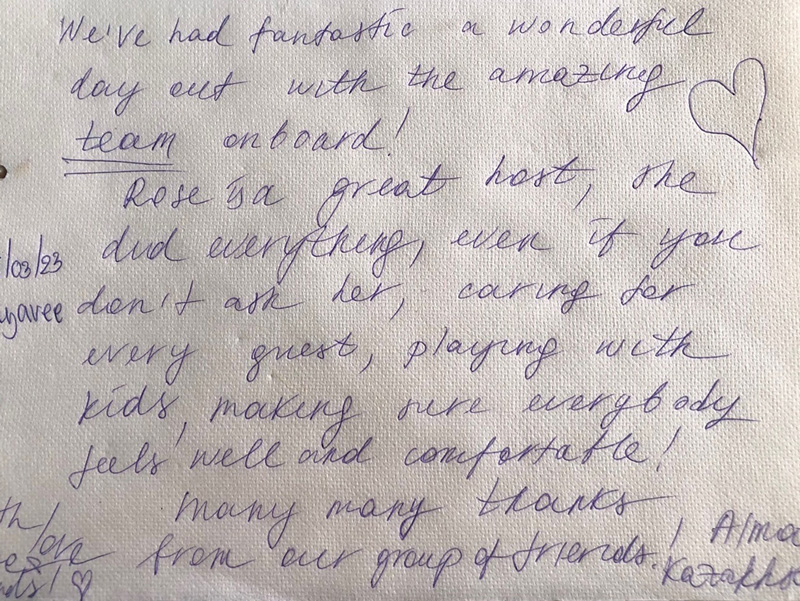 We've had fantastic a wonderful
day out with the amazing
team onboard!
Rose is a great host, she
did everything, even if you
/03/23
don't ask her, caring for
every guest, playing with
kids, making sure everybody
feels well and comfortable!
many many thanks
from our group of friends!
love